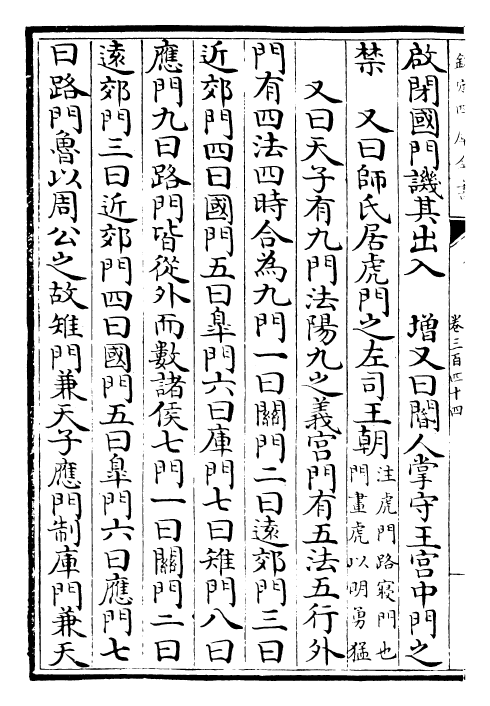 欽定四庫全書
卷三百四十四
啟閉國門譏其出入　增又曰閽人掌守王宮中門之
禁　又曰師氏居虎門之左司王朝注虎門路寢門也門畫虎以明勇猛
又曰天子有九門法陽九之義宮門有五法五行外
門有四法四時合為九門一曰關門二曰遠郊門三曰
近郊門四曰國門五曰臯門六曰庫門七曰雉門八曰
應門九曰路門皆從外而數諸侯七門一曰關門二曰
遠郊門三曰近郊門四曰國門五曰臯門六曰應門七
曰路門魯以周公之故雉門兼天子應門制庫門兼天